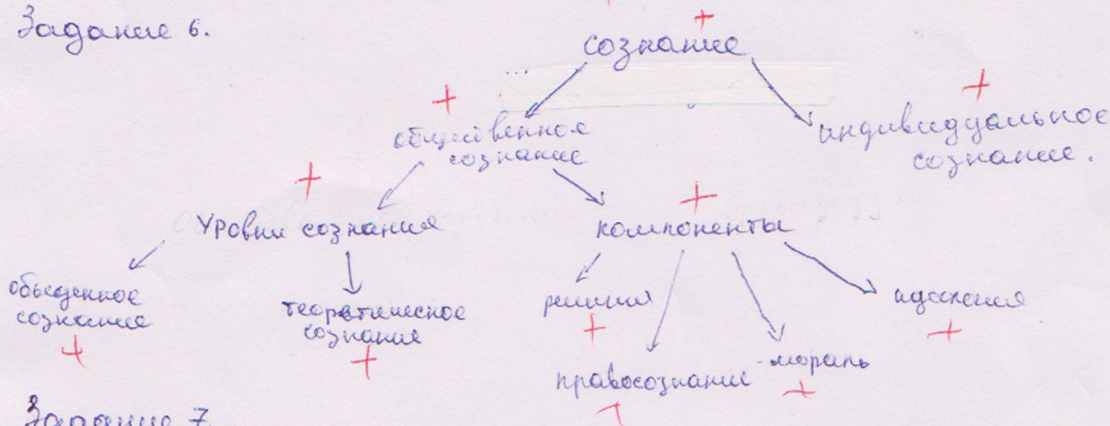 Задание 6.
сознание
общественное
сознание
индивидуальное
сознание.
Уровни сознания
компоненты
обыденное
сознание
теоретическое
сознание
религия
правосознание
мораль
идеология
Задание 7